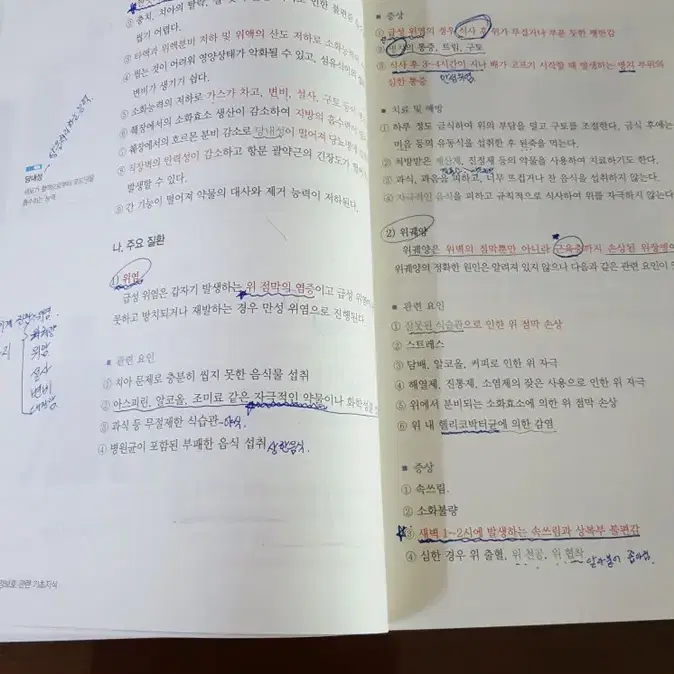 ② 충치, 치아의 탈락,
씹기 어렵다.
③ 타액과 위액분비 저하 및 위액의 산도 저하로 소화능력이
④ 씹는 것이 어려워 영양상태가 악화될 수 있고, 섬유식이의
변비가 생기기 쉽다.
⑤ 소화능력의 저하로 가스가 차고, 변비, 설사, 구토 등의
⑥ 췌장에서의 소화효소 생산이 감소하여 지방의 흡수력이
⑦ 췌장에서의 호르몬 분비 감소로 당내성이 떨어져 당뇨병에
⑧ 직장벽의 탄력성이 감소하고 항문 괄약근의 긴장도가
발생할 수 있다.
⑨ 간 기능이 떨어져 약물의 대사와 제거 능력이 저하된다.
당내성
흡수하는 능력
나. 주요 질환
1) 위염
급성 위염은 갑자기 발생하는 위 점막의 염증이고 급성 위염
못하고 방치되거나 재발하는 경우 만성 위염으로 진행된다
위염
위암
설사
변비
대장암
■ 관련 요인
① 치아 문제로 충분히 씹지 못한 음식물 섭취
② 아스피린, 알코올, 조미료 같은 자극적인 약물이나 화학성분
③ 과식 등 무절제한 식습관-야식
④ 병원균이 포함된 부패한 음식 섭취 상한음식.
관련 기초지식
■ 증상
① 급성 위염의 경우 식사 후 위가 무겁거나 부푼 듯한 팽만감
② 명치의 통증, 트림, 구토
③ 식사 후 3~4시간이 지나 배가 고프기 시작할 때 발생하는 명치 부위의
심한 통증 만성위염
■ 치료 및 예방
① 하루 정도 금식하여 위의 부담을 덜고 구토를 조절한다. 금식 후에는
미음 등의 유동식을 섭취한 후 된죽을 먹는다.
② 처방받은 제산제, 진정제 등의 약물을 사용하여 치료하기도 한다.
③ 과식, 과음을 피하고, 너무 뜨겁거나 찬 음식을 섭취하지 않는다.
④ 자극적인 음식을 피하고 규칙적으로 식사하여 위를 자극하지 않는다
2) 위궤양
위궤양은 위벽의 점막뿐만 아니라 근육층까지 손상된 위장병
위궤양의 정확한 원인은 알려져 있지 않으나 다음과 같은 관련 요인이
■ 관련 요인
① 잘못된 식습관으로 인한 위 점막 손상
② 스트레스
③ 담배, 알코올, 커피로 인한 위 자극
④ 해열제, 진통제, 소염제의 잦은 사용으로 인한 위 자극
⑤ 위에서 분비되는 소화효소에 의한 위 점막 손상
⑥ 위 내 헬리코박터균에 의한 감염
■ 증상
① 속쓰림
② 소화불량
③ 새벽 1~2시에 발생하는 속쓰림과 상복부 불편감
④ 심한 경우 위 출혈, 위 천공, 위 협착